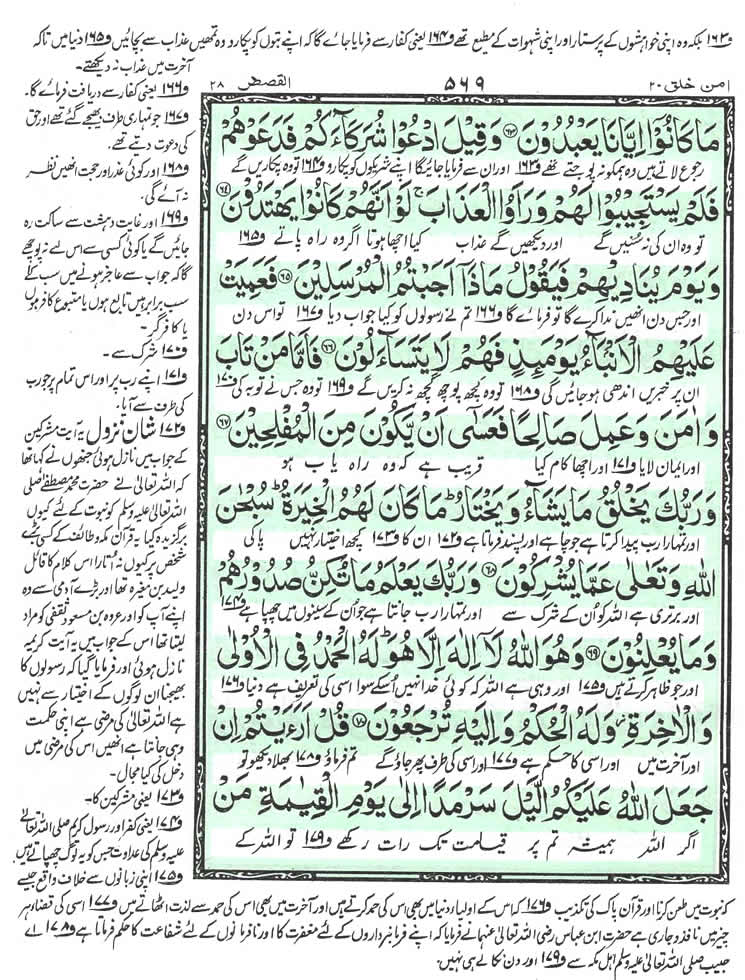 و۱۶۳ بلکہ وہ اپنی خواہشوں کے پرستار اور اپنی شہوات کے مطیع تھے و۱۶۴ یعنی کفار سے فرمایا جائے گا کہ اپنے بتوں کو پکارو وہ تمھیں عذاب سے بچائیں و۱۶۵ دنیا میں تاکہ
آخرت میں عذاب نہ دیکھتے۔
امن خلق ۲۰
۵۶۹
القصص ۲۸
مَا كَانُوْٓا اِيَّانَا يَعْبُدُوْنَ ﴿۶۳﴾ وَقِيْلَ ادْعُوْا شُرَكَآءَكُمْ فَدَعَوْهُمْ
رجوع لاتے ہیں وہ ہم کو نہ پوجتے تھے و۱۶۳ اور ان سے فرمایا جائیگا اپنے شریکوں کو پکارو و۱۶۴ تو وہ پکاریں گے
فَلَمْ يَسْتَجِيْبُوْا لَهُمْ وَرَاَوُا الْعَذَابَ ۚ لَوْ اَنَّهُمْ كَانُوْا يَهْتَدُوْنَ ﴿۶۴﴾
تو وہ ان کی نہ سُنیں گے اور دیکھیں گے عذاب کیا اچھا ہوتا اگر وہ راہ پاتے و۱۶۵
وَيَوْمَ يُنَادِيْهِمْ فَيَقُوْلُ مَاذَآ اَجَبْتُمُ الْمُرْسَلِيْنَ ﴿۶۵﴾ فَعَمِيَتْ
اور جس دن انھیں ندا کرے گا تو فرمائے گا و۱۶۶ تم نے رسولوں کو کیا جواب دیا و۱۶۷ تو اس دن
عَلَيْهِمُ الْاَنْۢبَآءُ يَوْمَئِذٍ فَهُمْ لَا يَتَسَآءَلُوْنَ ﴿۶۶﴾ فَاَمَّا مَنْ تَابَ
ان پر خبریں اندھی ہو جائیں گی و۱۶۸ تو وہ کچھ پوچھ گچھ نہ کریں گے و۱۶۹ تو وہ جس نے توبہ کی و۱۷۰
وَاٰمَنَ وَعَمِلَ صَالِحًا فَعَسٰٓى اَنْ يَّكُوْنَ مِنَ الْمُفْلِحِيْنَ ﴿۶۷﴾
اور ایمان لایا و۱۷۱ اور اچھا کام کیا قریب ہے کہ وہ راہ یاب ہو
وَرَبُّكَ يَخْلُقُ مَا يَشَآءُ وَيَخْتَارُ ؕ مَا كَانَ لَهُمُ الْخِيَرَةُ ؕ سُبْحٰنَ
اور تمہارا رب پیدا کرتا ہے جو چاہے اور پسند فرماتا ہے و۱۷۲ ان کا و۱۷۳ کچھ اختیار نہیں پاکی
اللّٰهِ وَتَعٰلٰى عَمَّا يُشْرِكُوْنَ ﴿۶۸﴾ وَرَبُّكَ يَعْلَمُ مَا تُكِنُّ صُدُوْرُهُمْ
اور برتری ہے اللہ کو اُن کے شرک سے اور تمہارا رب جانتا ہے جو اُن کے سینوں میں چھپا ہے و۱۷۴
وَمَا يُعْلِنُوْنَ ﴿۶۹﴾ وَهُوَ اللّٰهُ لَآ اِلٰهَ اِلَّا هُوَ ؕ لَهُ الْحَمْدُ فِى الْاُوْلٰى
اور جو ظاہر کرتے ہیں و۱۷۵ اور وہی ہے اللہ کہ کوئی خدا نہیں اُسکے سوا اسی کی تعریف ہے دنیا و۱۷۶
وَالْاٰخِرَةِ ۫ وَلَهُ الْحُكْمُ وَاِلَيْهِ تُرْجَعُوْنَ ﴿۷۰﴾ قُلْ اَرَءَيْتُمْ اِنْ
اور آخرت میں اور اسی کا حکم ہے و۱۷۷ اور اسی کی طرف پھر جاؤ گے تم فرماؤ و۱۷۸ بھلا دیکھو تو
جَعَلَ اللّٰهُ عَلَيْكُمُ الَّيْلَ سَرْمَدًا اِلٰى يَوْمِ الْقِيٰمَةِ مَنْ
اگر اللہ ہمیشہ تم پر قیامت تک رات رکھے و۱۷۹ تو اللہ کے
و۱۶۶ یعنی کفار سے دریافت فرمائے گا۔
و۱۶۷ جو تمہاری طرف بھیجے گئے تھے اور حق
کی دعوت دیتے تھے۔
و۱۶۸ اور کوئی عذر اور حجت انھیں نظر
نہ آئے گی۔
و۱۶۹ اور غایت دہشت سے ساکت رہ
جائیں گے یا کوئی کسی سے اس لیے نہ پوچھے
گا کہ جواب سے عاجز ہونے میں سب کے
سب برابر ہیں تابع ہوں یا متبوع کافر ہوں
یا کافر گر۔
و۱۷۰ شرک سے۔
و۱۷۱ اپنے رب پر اور اس تمام پر جو رب
کی طرف سے آیا۔
و۱۷۲ شان نزول یہ آیت مشرکین
کے جواب میں نازل ہوئی جنھوں نے کہا تھا
کہ اللہ تعالیٰ نے حضرت محمد مصطفےٰ صلی
اللہ تعالیٰ علیہ وسلم کو نبوت کے لئے کیوں
برگزیدہ کیا یہ قرآن مکہ و طائف کے کسی بڑے
شخص پر کیوں نہ اُتارا اس کلام کا قائل
ولید بن مغیرہ تھا اور بڑے آدمی سے وہ
اپنے آپ کو اور عروہ بن مسعود ثقفی کو مراد
لیتا تھا اس کے جواب میں یہ آیت کریمہ
نازل ہوئی اور فرمایا گیا کہ رسولوں کا
بھیجنا ان لوگوں کے اختیار سے نہیں
ہے اللہ تعالیٰ کی مرضی ہے اپنی حکمت
وہی جانتا ہے انھیں اس کی مرضی میں
دخل کی کیا مجال۔
و۱۷۳ یعنی مشرکین کا۔
و۱۷۴ یعنی کفر اور رسول کریم صلی اللہ تعالیٰ
علیہ وسلم کی عداوت جس کو یہ لوگ چھپاتے ہیں
و۱۷۵ اپنی زبانوں سے خلاف واقع جیسے
کہ نبوت میں طعن کرنا اور قرآن پاک کی تکذیب و۱۷۶ کہ اس کے اولیاء دنیا میں بھی اس کی حمد کرتے ہیں اور آخرت میں بھی اس کی حمد سے لذت اٹھاتے ہیں و۱۷۷ اسی کی قضا ہر
چیز میں نافذ و جاری ہے حضرت ابن عباس رضی اللہ تعالیٰ عنہما نے فرمایا کہ اپنے فرمانبرداروں کے لئے مغفرت کا اور نافرمانوں کے لئے شفاعت کا حکم فرماتا ہے و۱۷۸ اے
حبیب صلی اللہ تعالیٰ علیہ وسلم اہل مکہ سے و۱۷۹ اور دن نکالے ہی نہیں۔